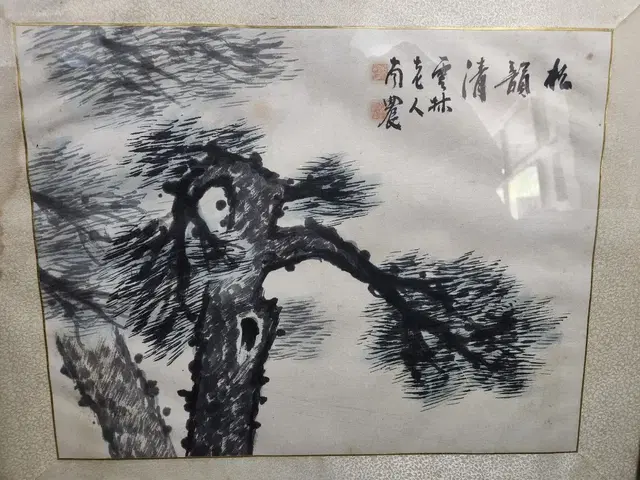 松韻清
雲林
老人
南農